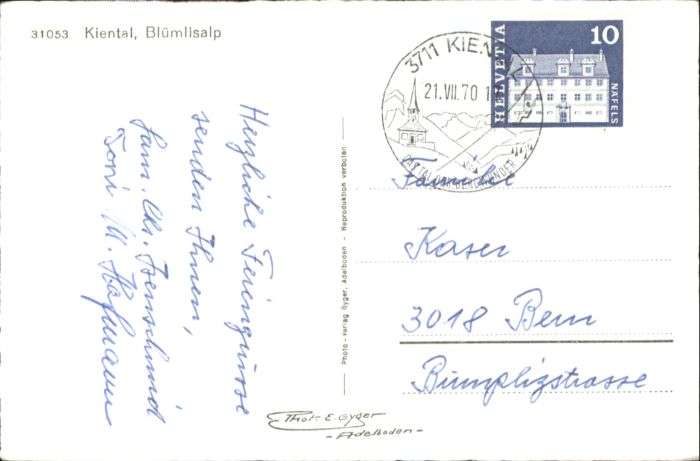 31053 Kiental, Blümlisalp
Herzliche Feriengrüsse
senden Ihnen,
Fam. Chr. Isenschmid
Toni u. Hofmann
Photo-verlag Gyger, Adelboden - Reproduktion verboten
Phot. E. Gyger
- Adelboden -
HELVETIA
10
NÄFELS
3711 KIEN
21.VII.70
Familie
Kaser
3018 Bern
Bümplizstrasse